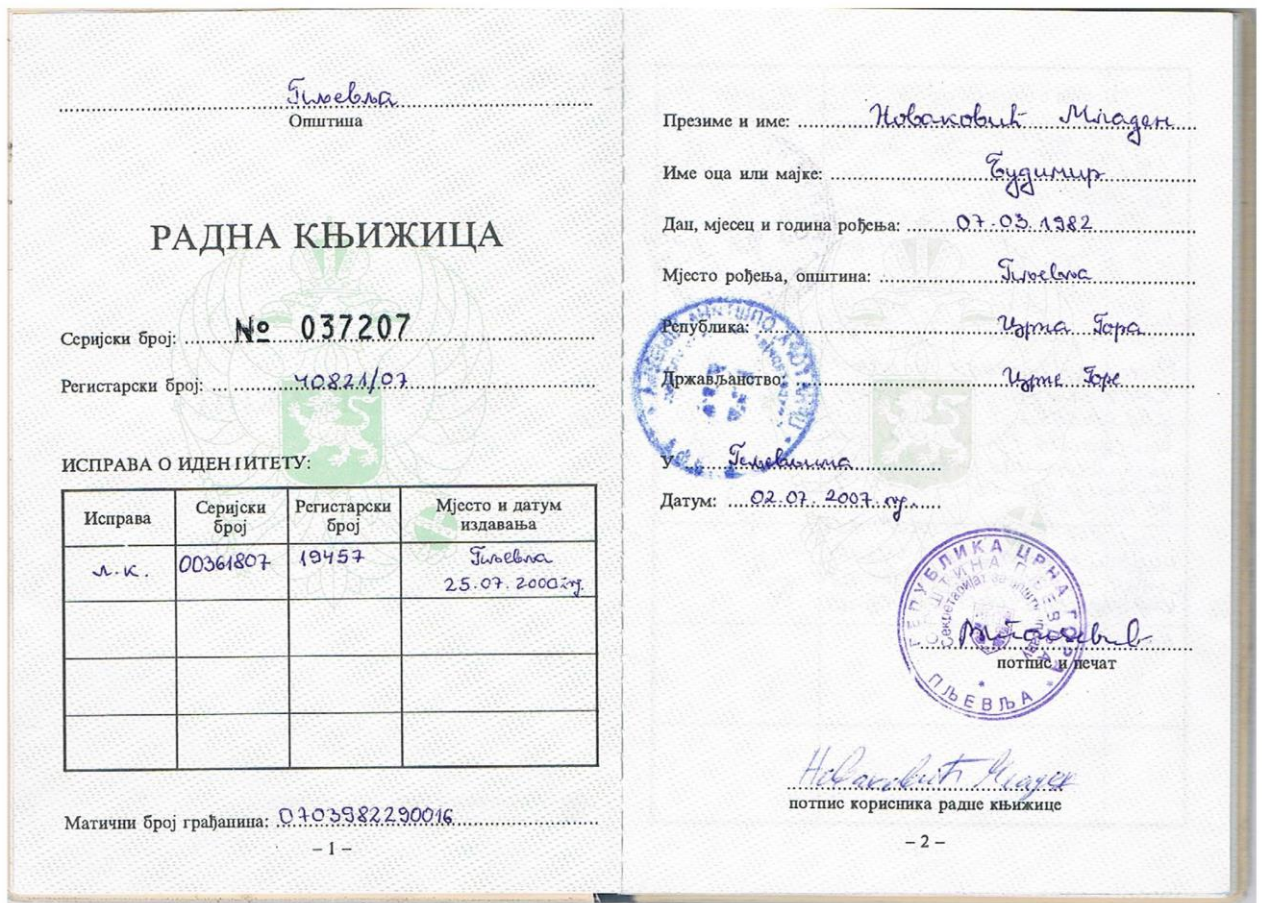 Пљевља
Општина
РАДНА КЊИЖИЦА
Серијски број: № 037207
Регистарски број: 40821/07
ИСПРАВА О ИДЕНТИТЕТУ:
Исправа Серијски број Регистарски број Мјесто и датум издавања
л.к. 00361807 19457 Пљевља
25.07.2000 г.
Матични број грађанина: 0703982290016
– 1 –
Презиме и име: Новаковић Младен
Име оца или мајке: Будимир
Дан, мјесец и година рођења: 07.03.1982
Мјесто рођења, општина: Пљевља
Република: Црна Гора
Држављанство: Црне Горе
У Пљевљима
Датум: 02.07.2007.
РЕПУБЛИКА ЦРНА ГОРА
ОПШТИНА ПЉЕВЉА
Секретаријат за општу управу
ПЉЕВЉА
потпис и печат
Новаковић Младен
потпис корисника радне књижице
– 2 –